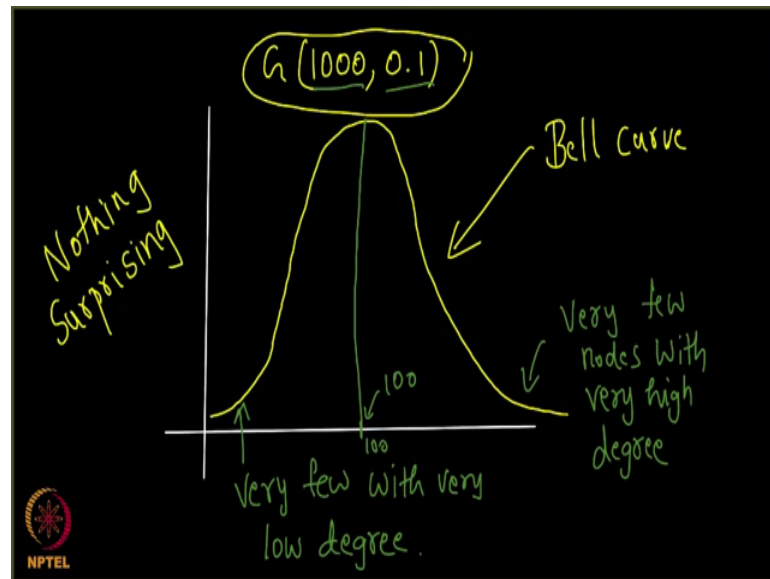 G(1000, 0.1)
Bell curve
Nothing
Surprising
Very few
nodes with
very high
degree
100
100
Very few with very
low degree.
NPTEL